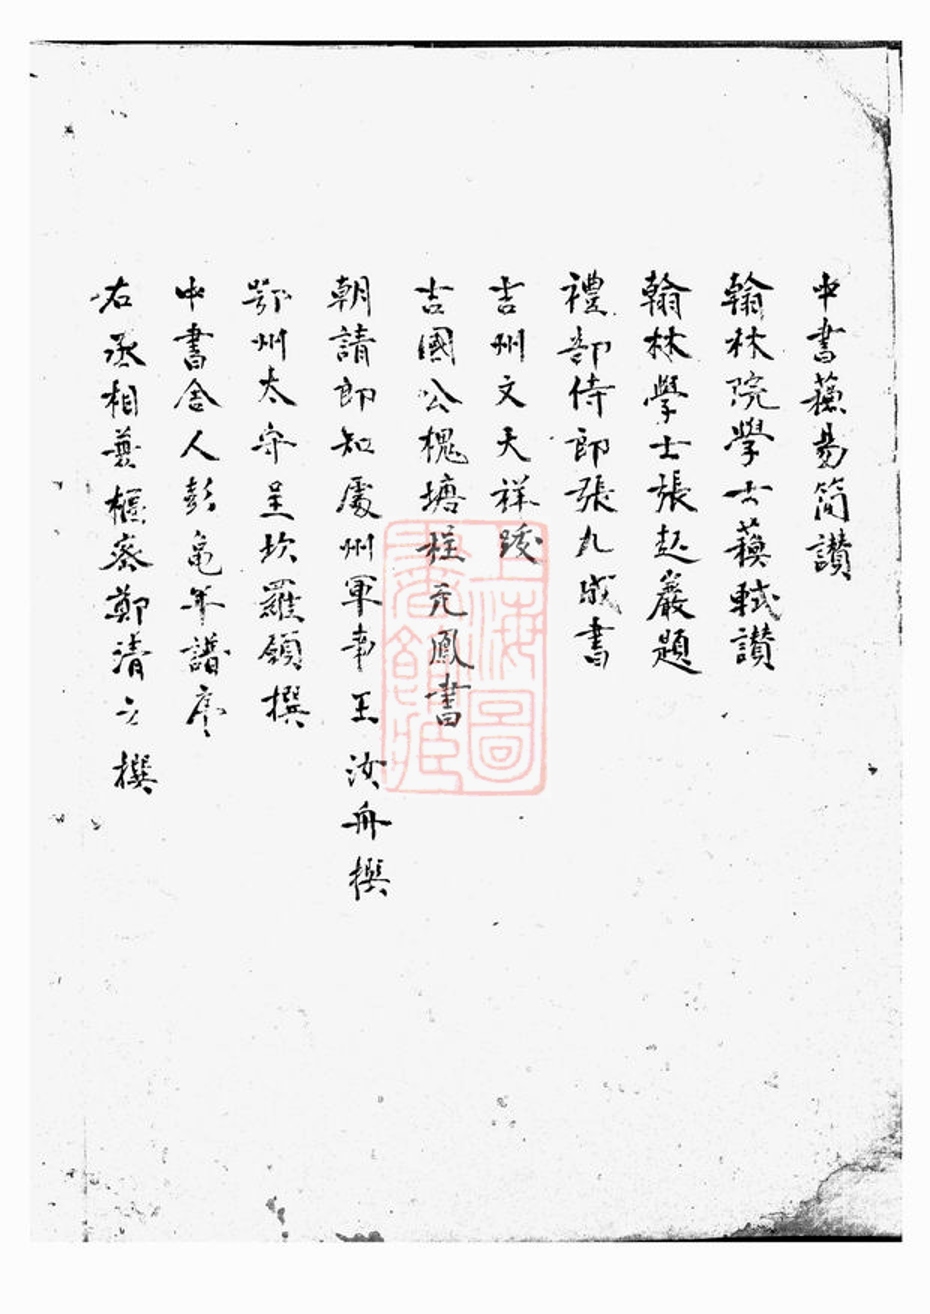 中書蘓易簡讃
翰林院學士蘓軾讃
翰林學士張起巖題
禮部侍郎張九成書
吉州文天祥跋
吉國公槐塘程元鳳書
朝請郎知處州軍事王汝舟撰
鄂州太守呈坎羅願撰
中書舍人彭龜年譜序
右丞相兼樞密鄭清之撰
上海圖書館藏